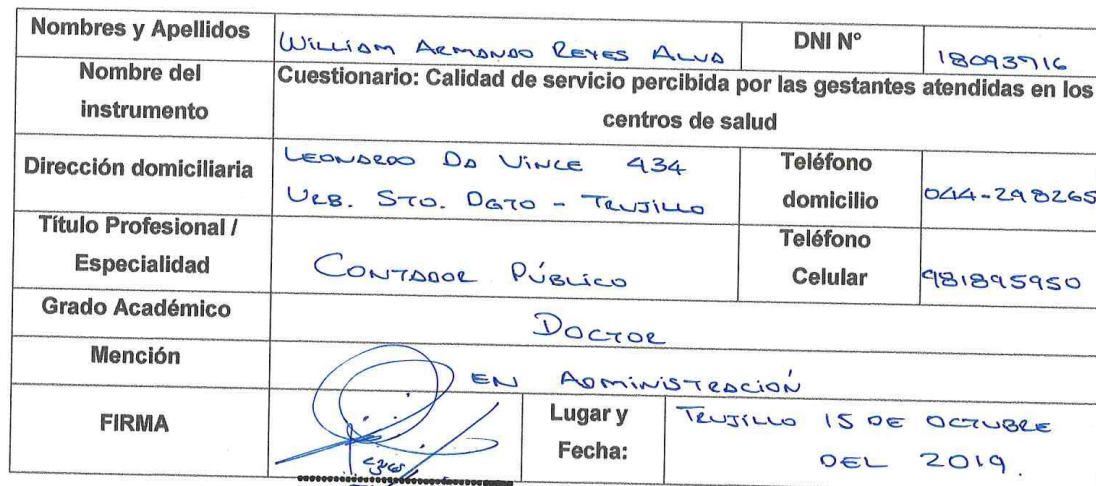 Nombres y Apellidos
WILLIAM ARMANDO REYES ALVA
DNI Nº
18093716
Nombre del
instrumento
Cuestionario: Calidad de servicio percibida por las gestantes atendidas en los
centros de salud
Dirección domiciliaria
LEONARDO DA VINCE 434
URB. STO. DGTO - TRUJILLO
Teléfono
domicilio
044-298265
Título Profesional /
Especialidad
CONTADOR PÚBLICO
Teléfono
Celular
981895950
Grado Académico
DOCTOR
Mención
EN ADMINISTRACIÓN
FIRMA
Lugar y
Fecha:
TRUJILLO 15 DE OCTUBRE
DEL 2019.